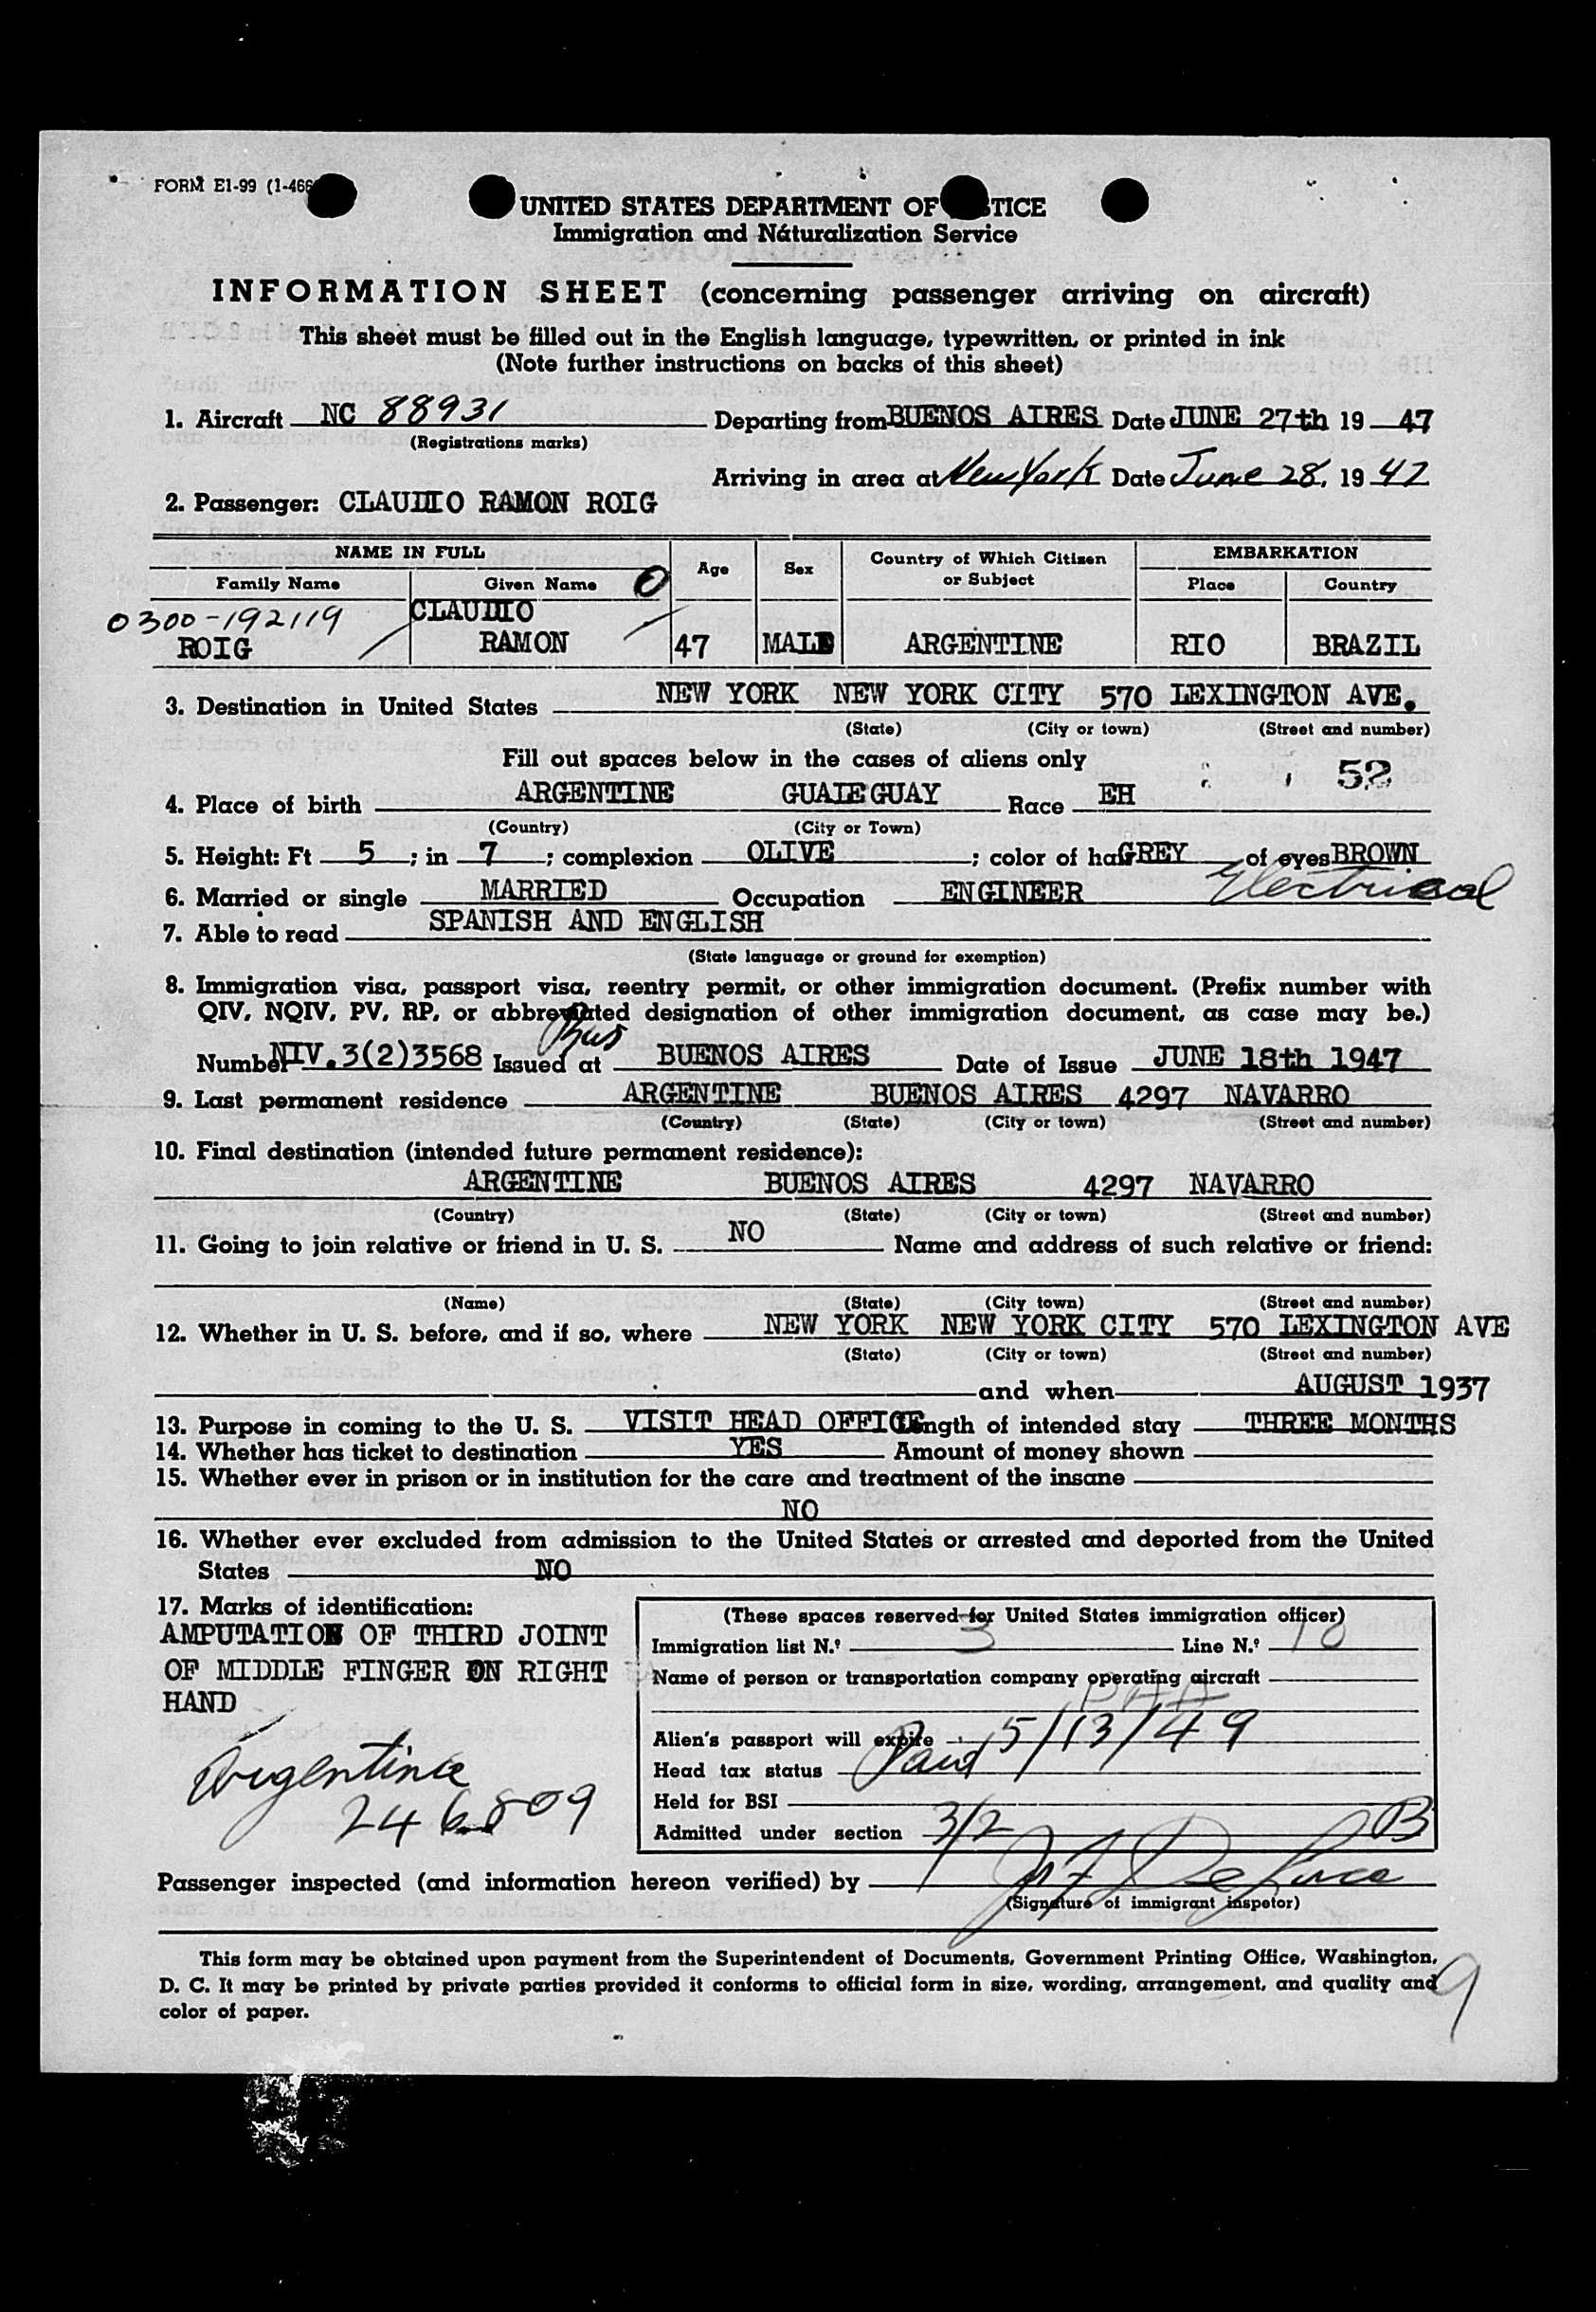 FORM E1-99 (1-466
UNITED STATES DEPARTMENT OF TICE
Immigration and Naturalization Service
INFORMATION SHEET (concerning passenger arriving on aircraft)
This sheet must be filled out in the English language, typewritten, or printed in ink
(Note further instructions on backs of this sheet)
1. Aircraft NC 88931 Departing from BUENOS AIRES Date JUNE 27th 19 47
(Registrations marks)
Arriving in area at New York Date June 28, 19 47
2. Passenger: CLAUDIO RAMON ROIG
NAME IN FULL Age Sex Country of Which Citizen or Subject EMBARKATION
Family Name Given Name Place Country
0300-192119 CLAUDIO
ROIG RAMON 47 MALE ARGENTINE RIO BRAZIL
3. Destination in United States NEW YORK NEW YORK CITY 570 LEXINGTON AVE.
(State) (City or town) (Street and number)
Fill out spaces below in the cases of aliens only 52
4. Place of birth ARGENTINE GUALEGUAY Race EH
(Country) (City or Town)
5. Height: Ft 5 ; in 7 ; complexion OLIVE ; color of hair GREY of eyes BROWN
6. Married or single MARRIED Occupation ENGINEER Electrical
7. Able to read SPANISH AND ENGLISH
(State language or ground for exemption)
8. Immigration visa, passport visa, reentry permit, or other immigration document. (Prefix number with
QIV, NQIV, PV, RP, or abbreviated designation of other immigration document, as case may be.)
Number NIV.3(2)3568 Issued at BUENOS AIRES Date of Issue JUNE 18th 1947
9. Last permanent residence ARGENTINE BUENOS AIRES 4297 NAVARRO
(Country) (State) (City or town) (Street and number)
10. Final destination (intended future permanent residence):
ARGENTINE BUENOS AIRES 4297 NAVARRO
(Country) (State) (City or town) (Street and number)
11. Going to join relative or friend in U. S. NO Name and address of such relative or friend:
(Name) (State) (City town) (Street and number)
12. Whether in U. S. before, and if so, where NEW YORK NEW YORK CITY 570 LEXINGTON AVE
(State) (City or town) (Street and number)
and when AUGUST 1937
13. Purpose in coming to the U. S. VISIT HEAD OFFICE Length of intended stay THREE MONTHS
14. Whether has ticket to destination YES Amount of money shown
15. Whether ever in prison or in institution for the care and treatment of the insane
NO
16. Whether ever excluded from admission to the United States or arrested and deported from the United
States NO
17. Marks of identification:
AMPUTATION OF THIRD JOINT
OF MIDDLE FINGER ON RIGHT
HAND
Argentina
246809
(These spaces reserved for United States immigration officer)
Immigration list N.º 3 Line N.º 10
Name of person or transportation company operating aircraft
PAA
Alien's passport will expire 5/13/49
Head tax status Paid
Held for BSI
Admitted under section 3/2 B
Passenger inspected (and information hereon verified) by
(Signature of immigrant inspetor)
This form may be obtained upon payment from the Superintendent of Documents, Government Printing Office, Washington,
D. C. It may be printed by private parties provided it conforms to official form in size, wording, arrangement, and quality and
color of paper.
9